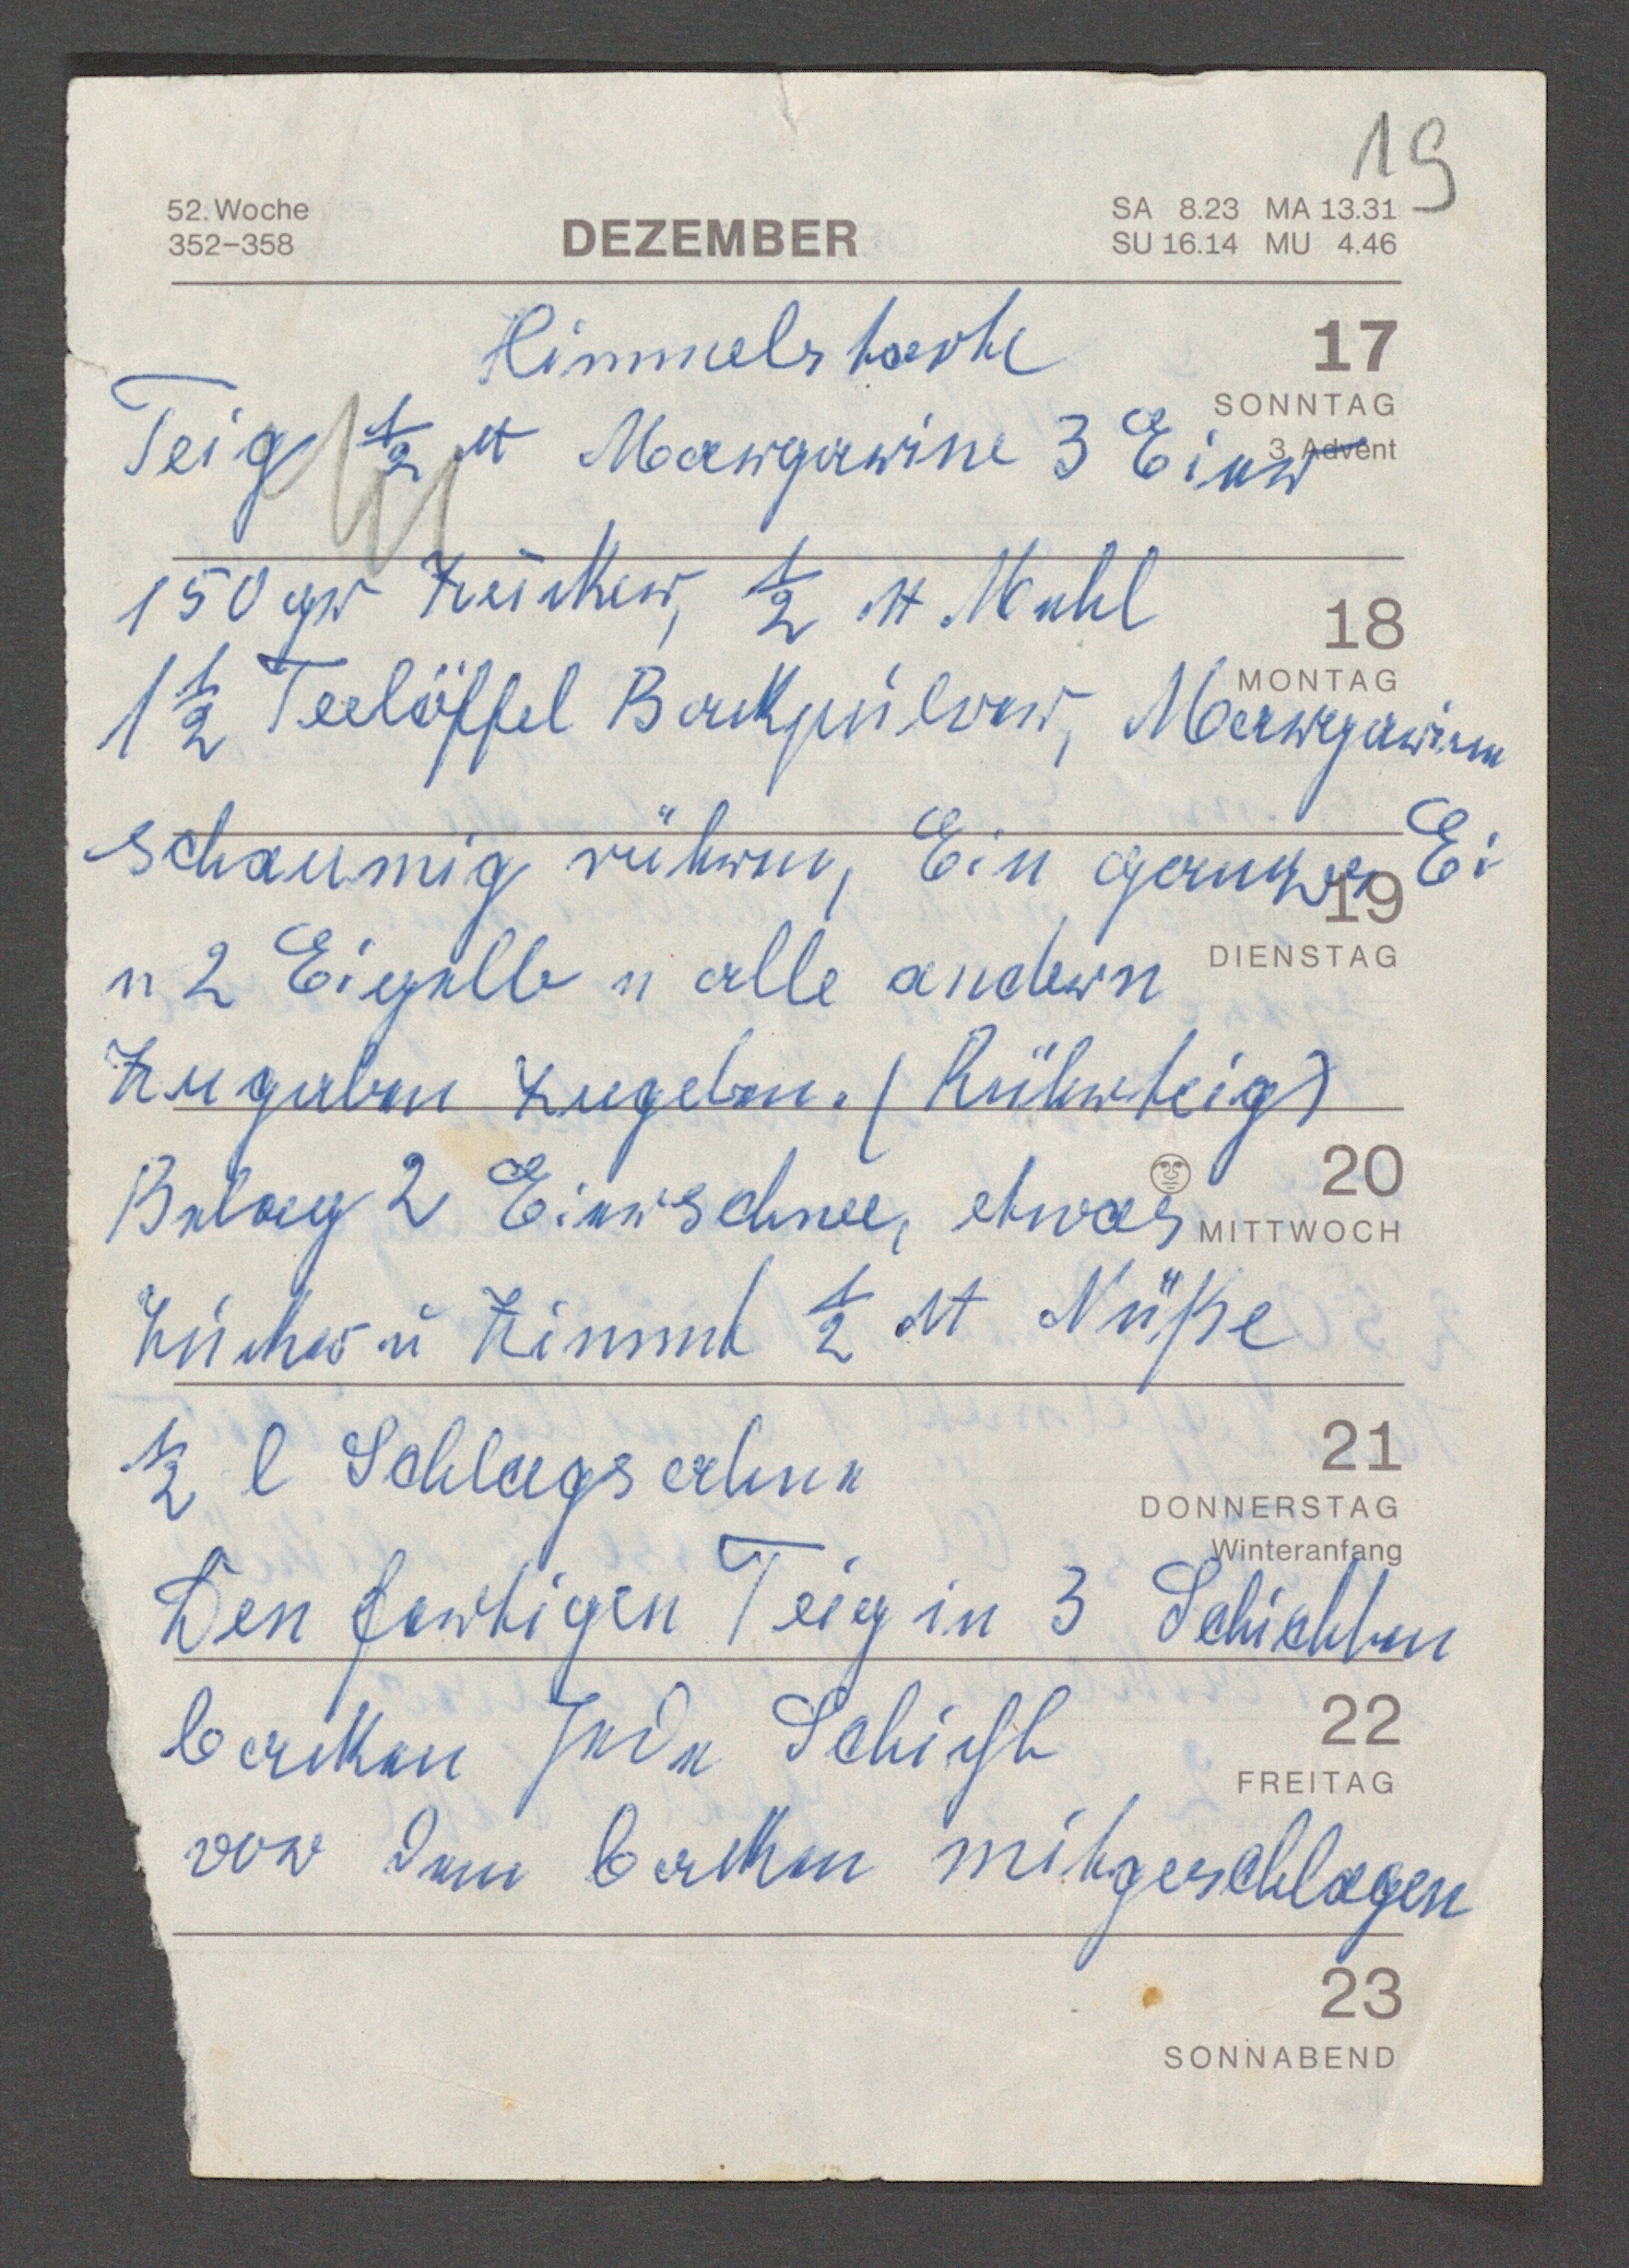 19
52. Woche DEZEMBER SA 8.23 MA 13.31
352–358 SU 16.14 MU 4.46
Himmelstorte
17
SONNTAG
3. Advent
Teig ½ ℔ Margarine 3 Eier
150 gr Zucker, ½ ℔ Mehl
18
MONTAG
1½ Teelöffel Backpulver, Margarine
schaumig rühren, Ein ganzes Ei
19
DIENSTAG
u 2 Eigelb u alle andern
Zugaben zugeben. (Rührteig)
20
MITTWOCH
Belag 2 Eierschnee, etwas
Zucker u Zimmt ½ ℔ Nüße
21
DONNERSTAG
Winteranfang
½ l Schlagsahne
Den fertigen Teig in 3 Schichten
22
FREITAG
backen Jede Schicht
vor dem backen mit geschlagen
23
SONNABEND